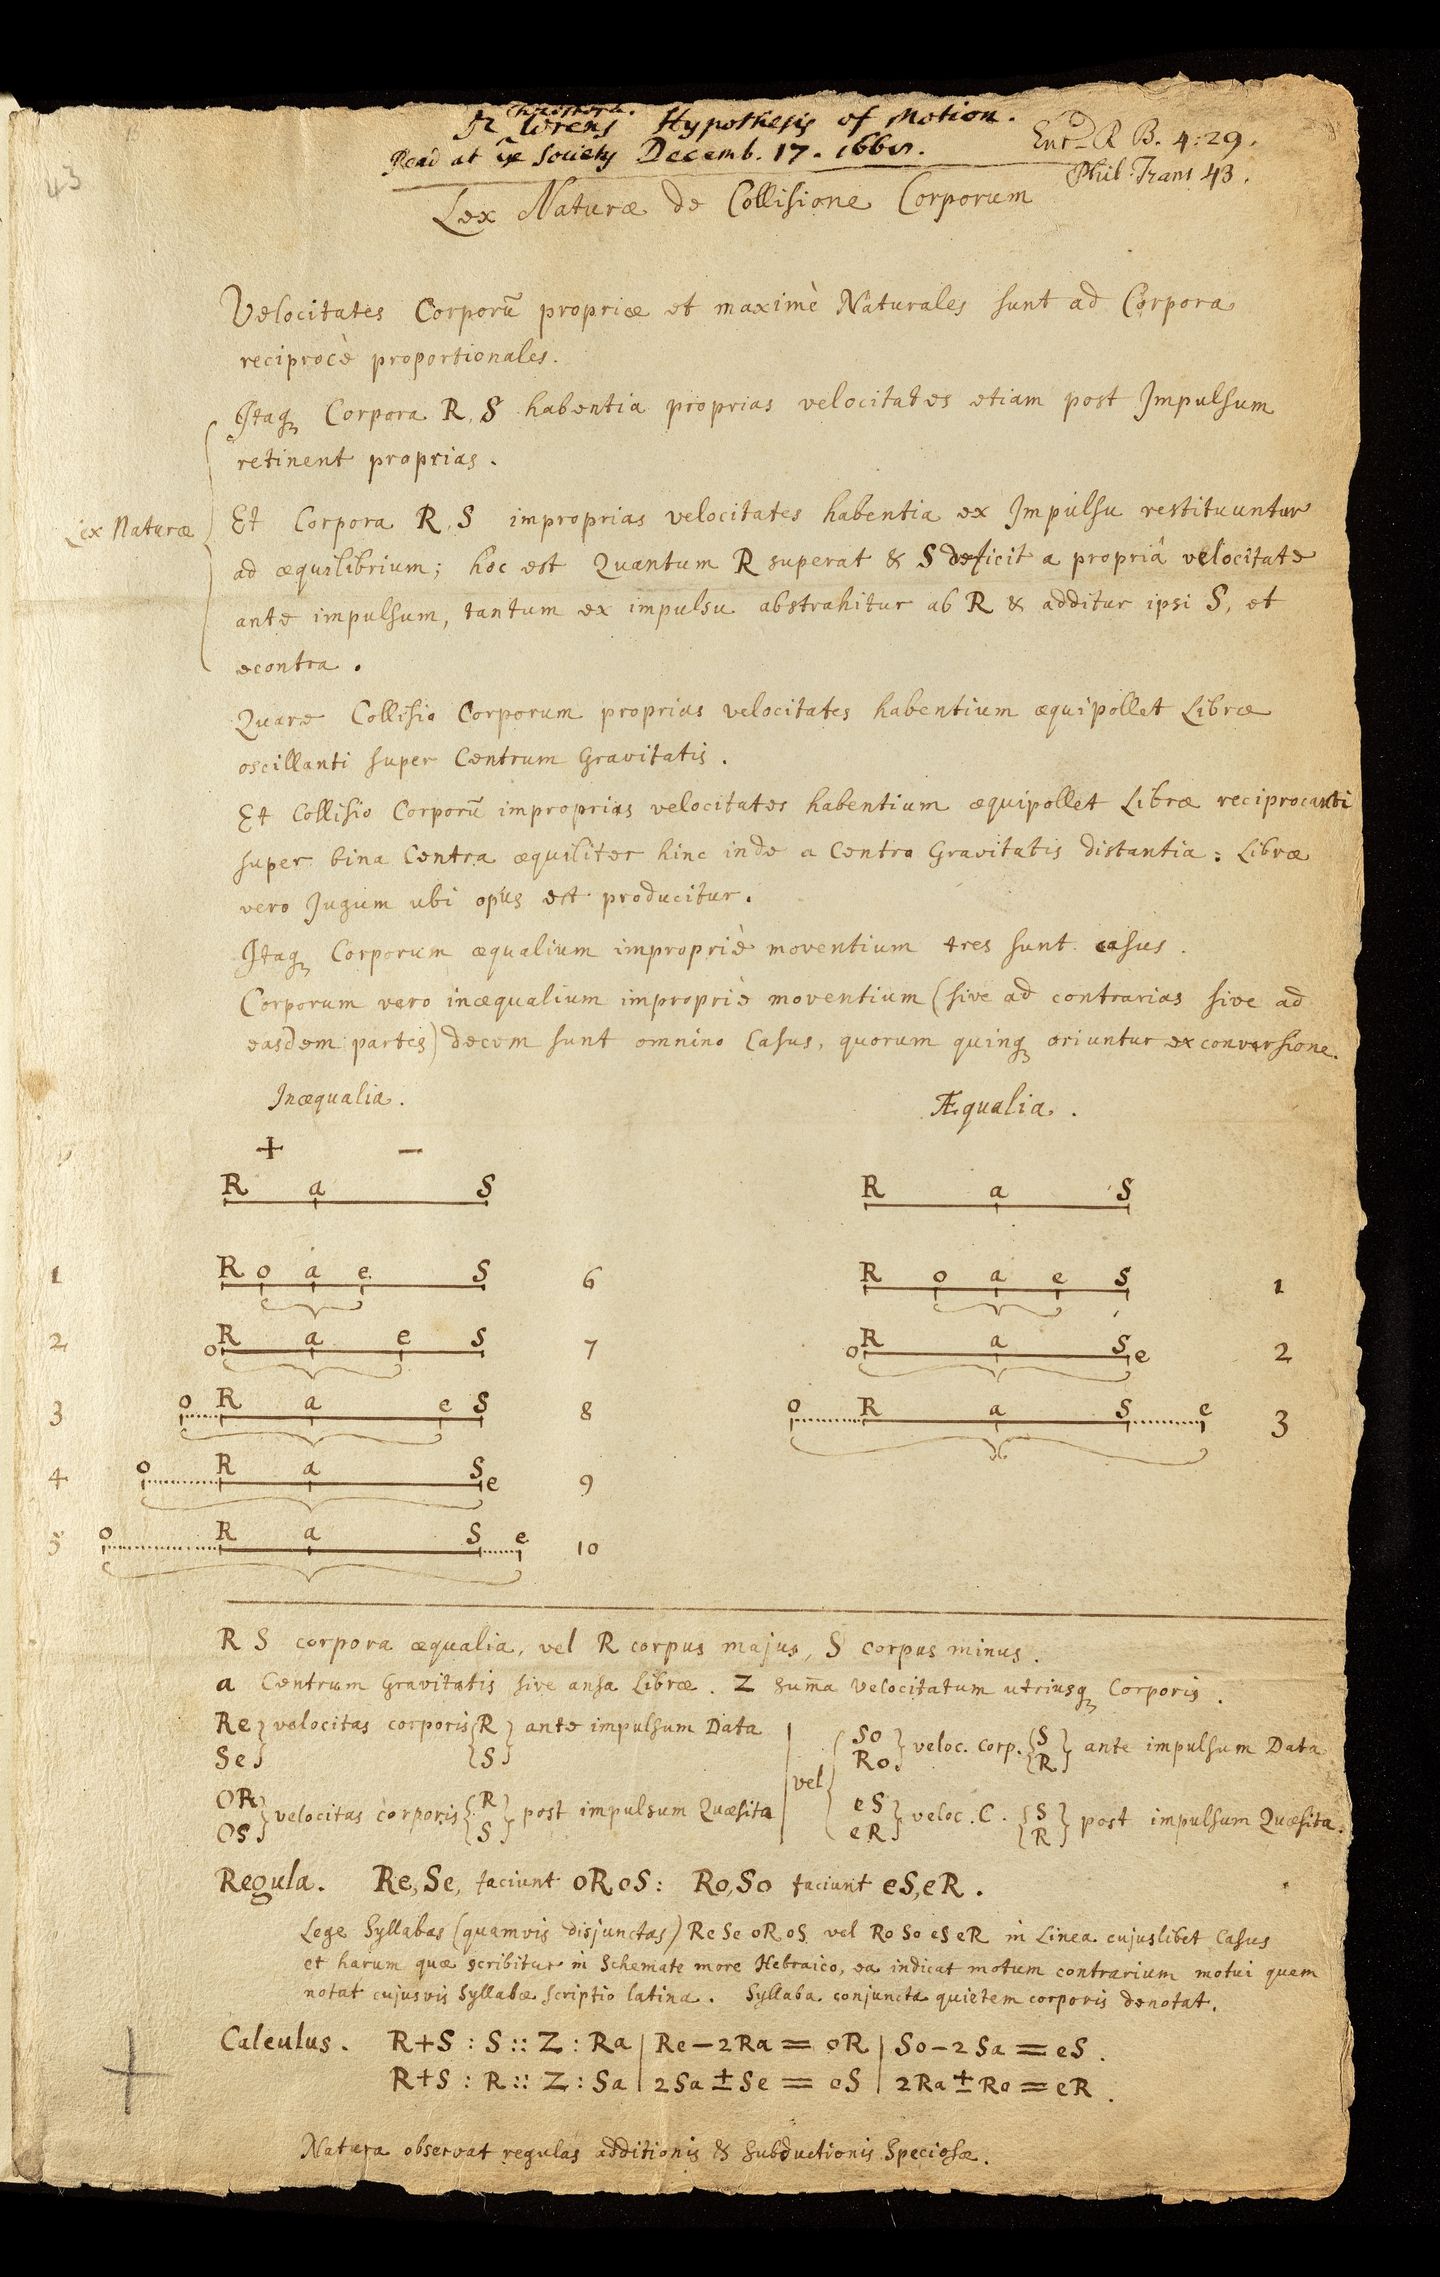 43
Christoph.
Dr Wrens Hypothesis of Motion.
Read at ye Society Decemb. 17. 1668.
Entd R B. 4:29.
Phil: Trans 43.
Lex Naturæ de Collisione Corporum
Velocitates Corporũ propriæ et maximè Naturales sunt ad Corpora
reciprocè proportionales.
Itaq Corpora R, S habentia proprias velocitates etiam post Impulsum
retinent proprias.
Lex Naturæ
Et Corpora R, S improprias velocitates habentia ex Impulsu restituuntur
ad æquilibrium; hoc est Quantum R superat & S deficit a propriâ velocitate
ante impulsum, tantum ex impulsu abstrahitur ab R & additur ipsi S, et
econtra.
Quare Collisio Corporum proprias velocitates habentium æquipollet Libræ
oscillanti super Centrum Gravitatis.
Et Collisio Corporũ improprias velocitates habentium æquipollet Libræ reciprocanti
super bina Centra æquiliter hinc inde a Centro Gravitatis distantia: Libræ
vero Jugum ubi opus est producitur.
Itaq Corporum æqualium impropriè moventium tres sunt casus.
Corporum vero inæqualium impropriè moventium (sive ad contrarias sive ad
easdem partes) decem sunt omnino Casus, quorum quinq oriuntur ex conversione.
Inæqualia. Æqualia.
+ −
R a S R a S
1 R o a e S 6 R o a e S 1
2 oR a e S 7 oR a Se 2
3 o R a e S 8 o R a S e 3
4 o R a Se 9
5 o R a S e 10
R S corpora æqualia, vel R corpus majus, S corpus minus.
a Centrum Gravitatis sive ansa Libræ. Z sum̄a velocitatum utriusq Corporis.
Re} velocitas corporis {R} ante impulsum Data | vel { So} veloc. corp. {S} ante impulsum Data
Se} {S} Ro} {R}
OR} velocitas corporis {R} post impulsum Quæsita eS} veloc. C. {S} post impulsum Quæsita.
OS} {S} eR} {R}
Regula. Re, Se, faciunt oR oS: Ro, So faciunt eS, eR.
Lege Syllabas (quamvis disjunctas) Re Se oR oS vel Ro So eS eR in Linea cujuslibet Casus
et harum quæ scribitur in Schemate more Hebraico, ea indicat motum contrarium motui quem
notat cujusvis Syllabæ scriptio latina. Syllaba conjuncta quietem corporis denotat.
Calculus. R+S : S :: Z : Ra | Re − 2Ra = oR | So − 2Sa = eS.
R+S : R :: Z : Sa | 2Sa ± Se = oS | 2Ra ± Ro = eR.
Natura observat regulas additionis & subductionis Speciosæ.